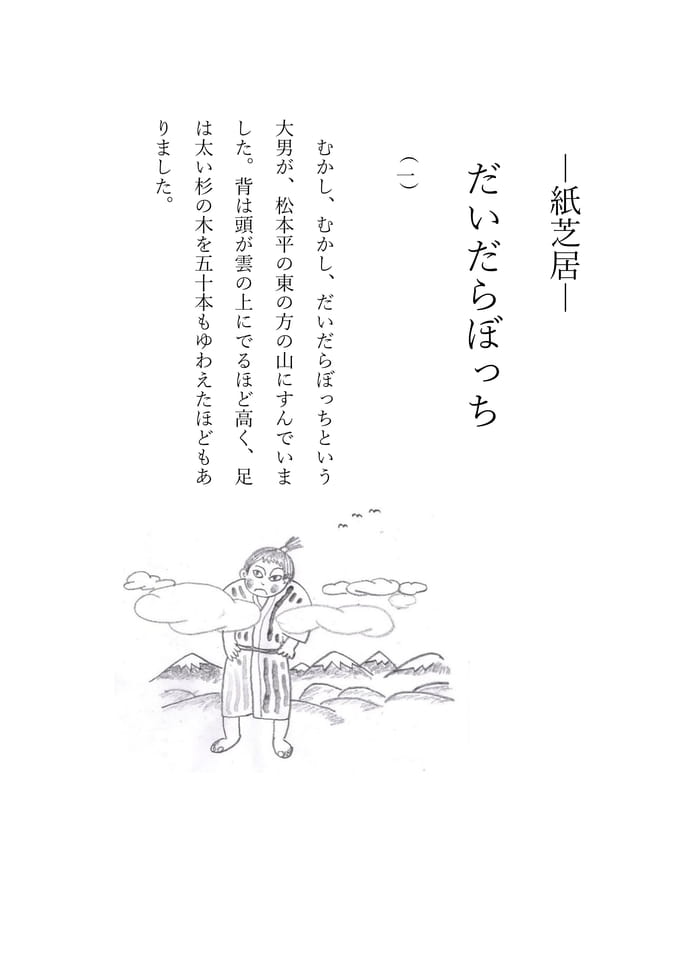 ―紙芝居―
だいだらぼっち
（一）
むかし、むかし、だいだらぼっちという
大男が、松本平の東の方の山にすんでいま
した。背は頭が雲の上にでるほど高く、足
は太い杉の木を五十本もゆわえたほどもあ
りました。